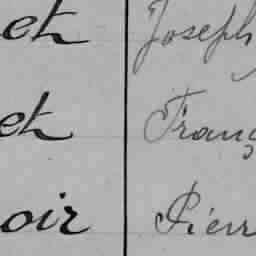 et Joseph
et Franç
oir Pierr